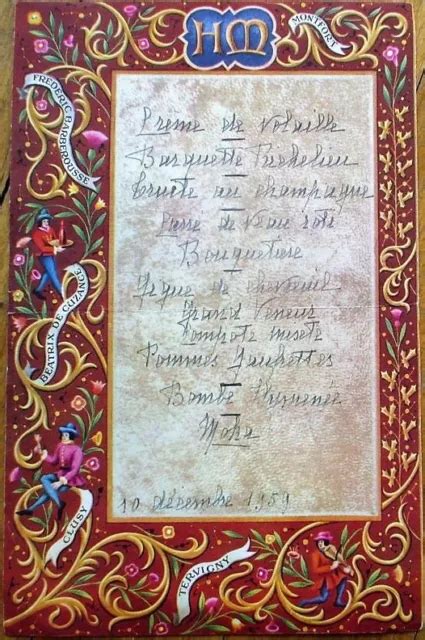 HM
MONTFORT
FREDERIC BARBEROUSSE
Creme de volaille
Barquette Richelieu
Truite au champagne
Pièce de Veau rôti
Bouquetiere
BEATRIX DE CUZANCE
Gigue de chevreuil
Grand Veneur
Compote mixte
Pommes Gaufrettes
Bombe
Moka
CLUSY
10 décembre 1959
TERVIGNY